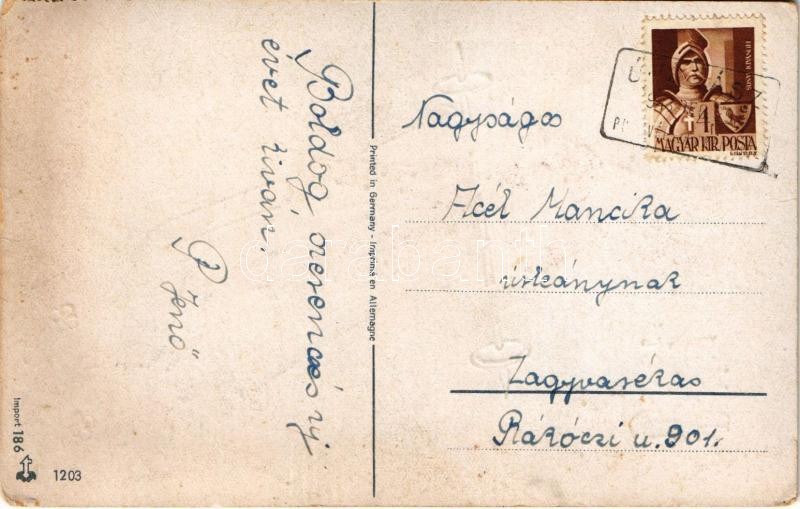 Boldog, szerencsés új
évet kíván.
P. Jenő
Import 186
1203
Printed in Germany - Imprimé en Allemagne
HUNYADI JÁNOS
4
MAGYAR KIR. POSTA
Nagyságos
Acél Mancika
úrleánynak
Zagyvarékas
Rákóczi u. 901.
darabanth